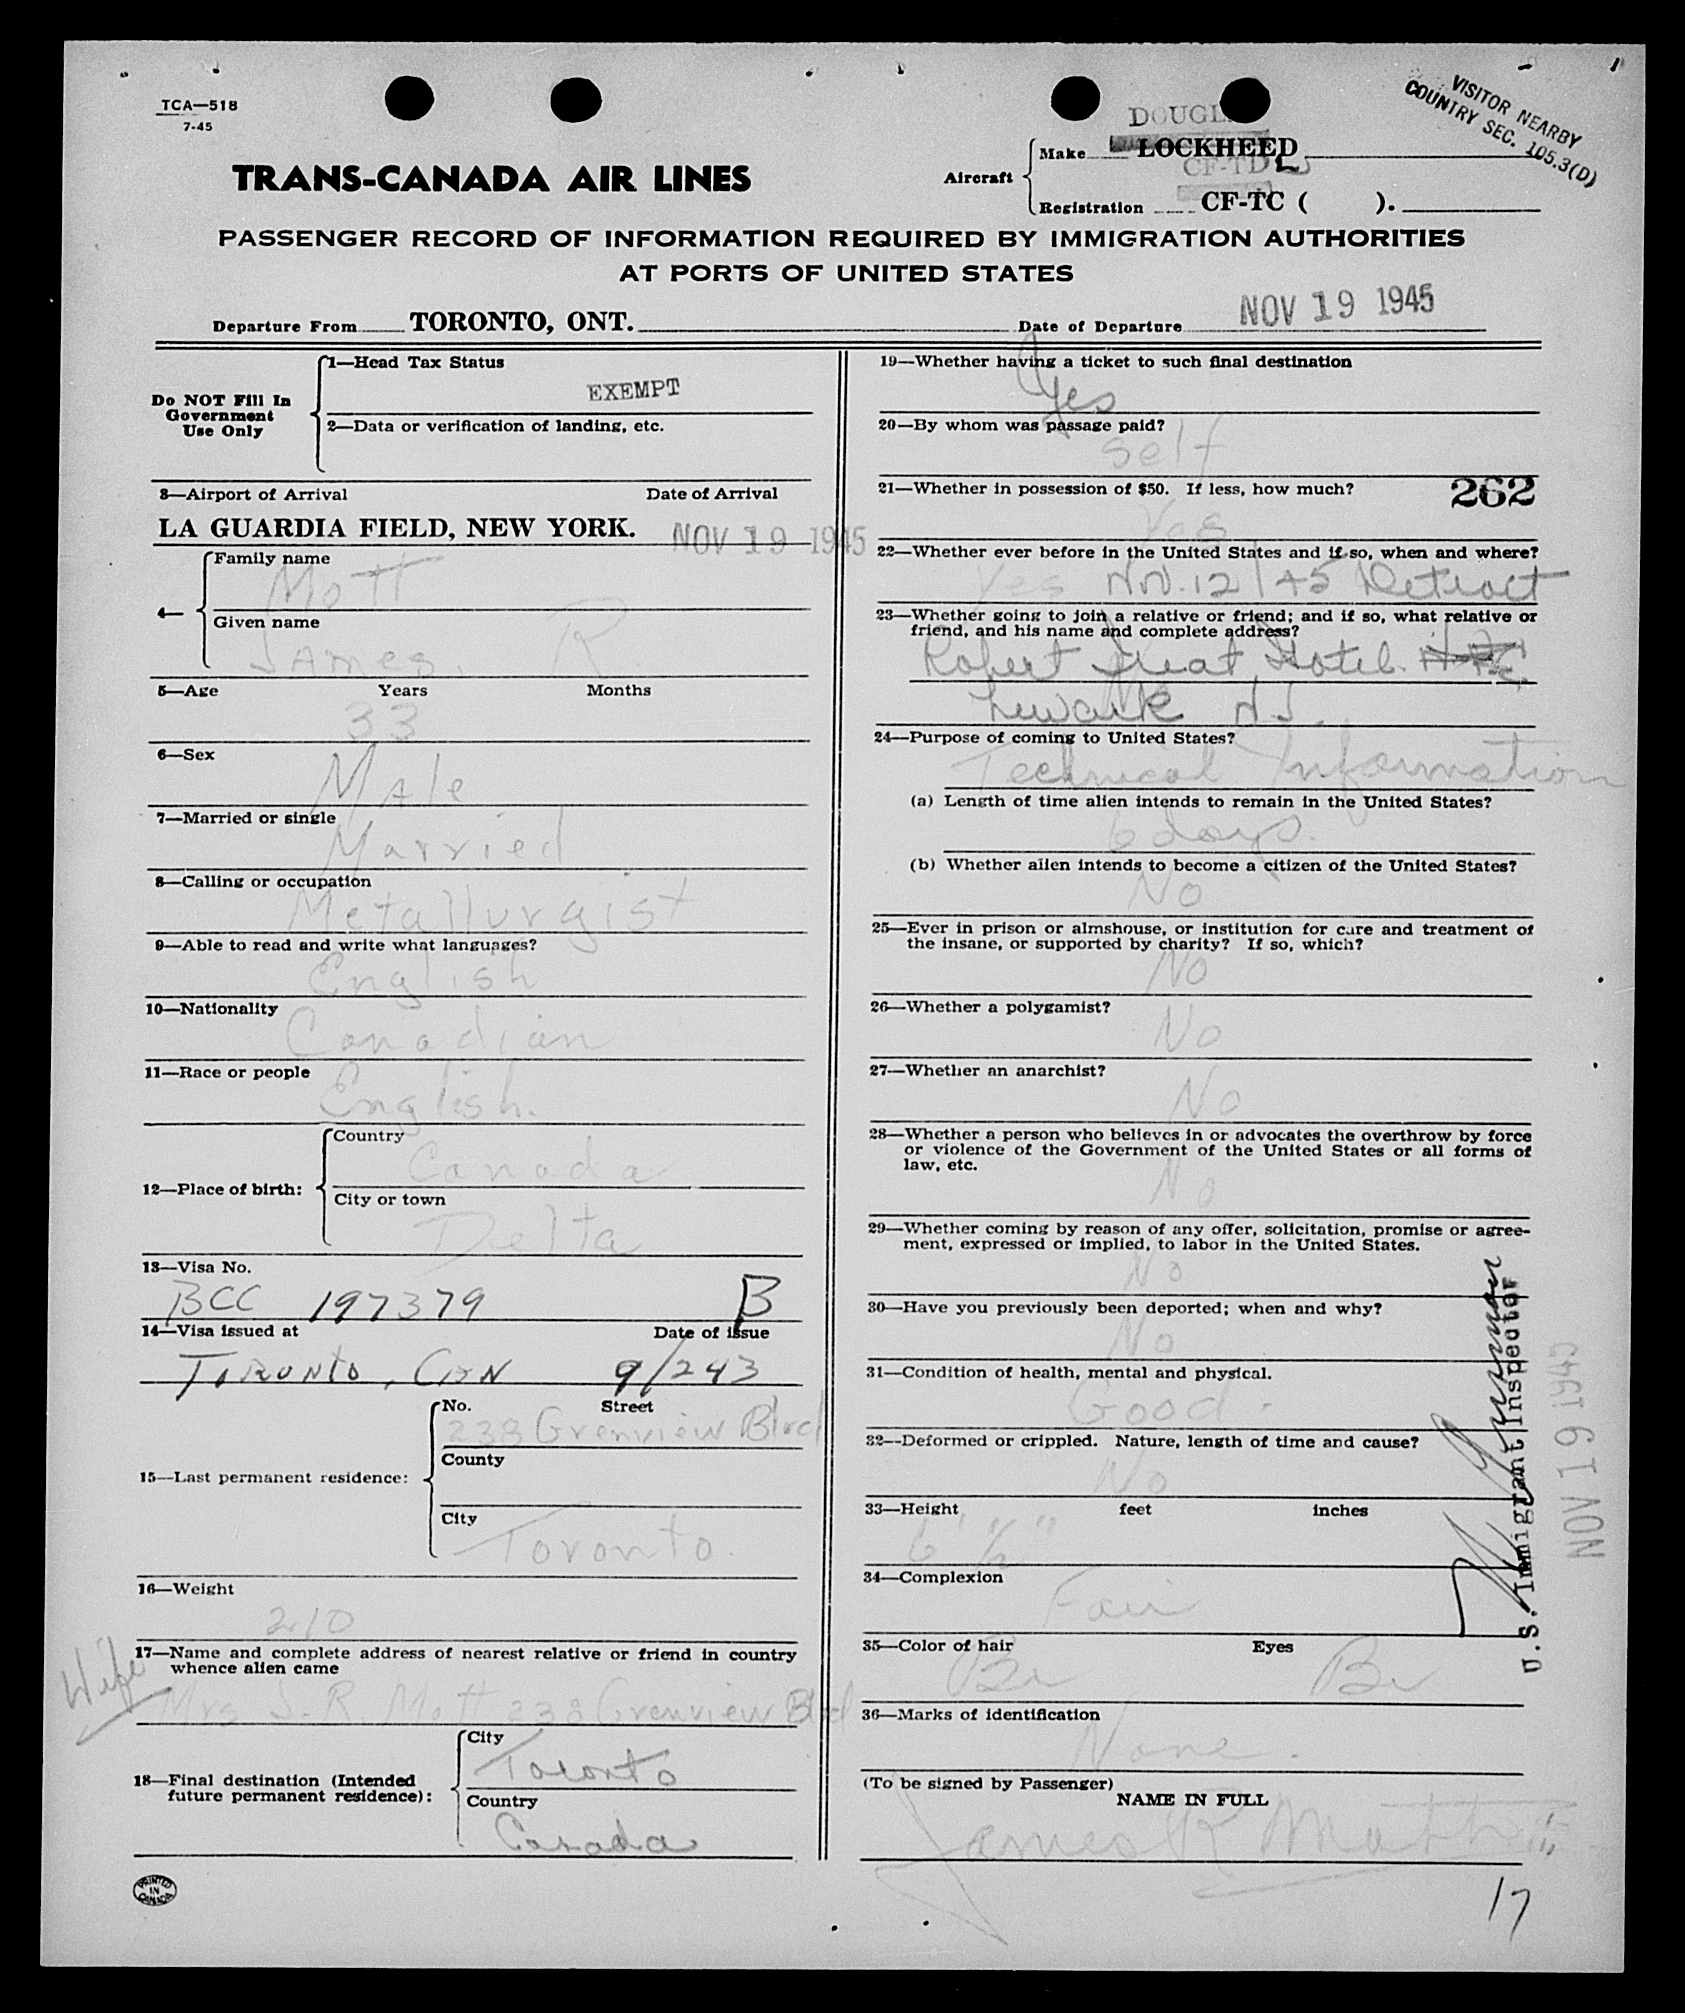 TCA—518
7-45
VISITOR NEARBY
COUNTRY SEC. 105.3(D)
DOUGL
Aircraft
Make LOCKHEED
CF-TD L
Registration CF-TC ( ).
TRANS-CANADA AIR LINES
PASSENGER RECORD OF INFORMATION REQUIRED BY IMMIGRATION AUTHORITIES
AT PORTS OF UNITED STATES
Departure From TORONTO, ONT. Date of Departure NOV 19 1945
Do NOT Fill In
Government
Use Only
1—Head Tax Status
EXEMPT
2—Data or verification of landing, etc.
3—Airport of Arrival Date of Arrival
LA GUARDIA FIELD, NEW YORK. NOV 19 1945
4—
Family name
Mott
Given name
James. R
5—Age Years Months
33
6—Sex
Male
7—Married or single
Married
8—Calling or occupation
Metallurgist
9—Able to read and write what languages?
English
10—Nationality
Canadian
11—Race or people
English.
12—Place of birth:
Country
Canada
City or town
Delta
13—Visa No.
BCC 197379 B
14—Visa issued at Date of issue
TORONTO, CAN 9/243
15—Last permanent residence:
No. Street
238 Grenview Blvd
County
City
Toronto.
16—Weight
210
Wife
17—Name and complete address of nearest relative or friend in country
whence alien came
Mrs J. R. Mott 238 Grenview Blvd
18—Final destination (Intended
future permanent residence):
City
Toronto
Country
Canada
PRINTED
IN
CANADA
19—Whether having a ticket to such final destination
Yes
20—By whom was passage paid?
Self
21—Whether in possession of $50. If less, how much? 262
Yes
22—Whether ever before in the United States and if so, when and where?
Yes Nov. 12/45 Detroit
23—Whether going to join a relative or friend; and if so, what relative or
friend, and his name and complete address?
Robert Treat Hotel.
Newark NJ.
24—Purpose of coming to United States?
Technical Information
(a) Length of time alien intends to remain in the United States?
6 days.
(b) Whether alien intends to become a citizen of the United States?
No
25—Ever in prison or almshouse, or institution for care and treatment of
the insane, or supported by charity? If so, which?
No
26—Whether a polygamist?
No
27—Whether an anarchist?
No
28—Whether a person who believes in or advocates the overthrow by force
or violence of the Government of the United States or all forms of
law, etc.
No
29—Whether coming by reason of any offer, solicitation, promise or agree-
ment, expressed or implied, to labor in the United States.
No
30—Have you previously been deported; when and why?
No
31—Condition of health, mental and physical.
Good.
32—Deformed or crippled. Nature, length of time and cause?
No
33—Height feet inches
6' ½"
34—Complexion
Fair
35—Color of hair Eyes
Br Br
36—Marks of identification
None.
(To be signed by Passenger)
NAME IN FULL
James R Mott
U.S. Immigrant Inspector
NOV 19 1945
17